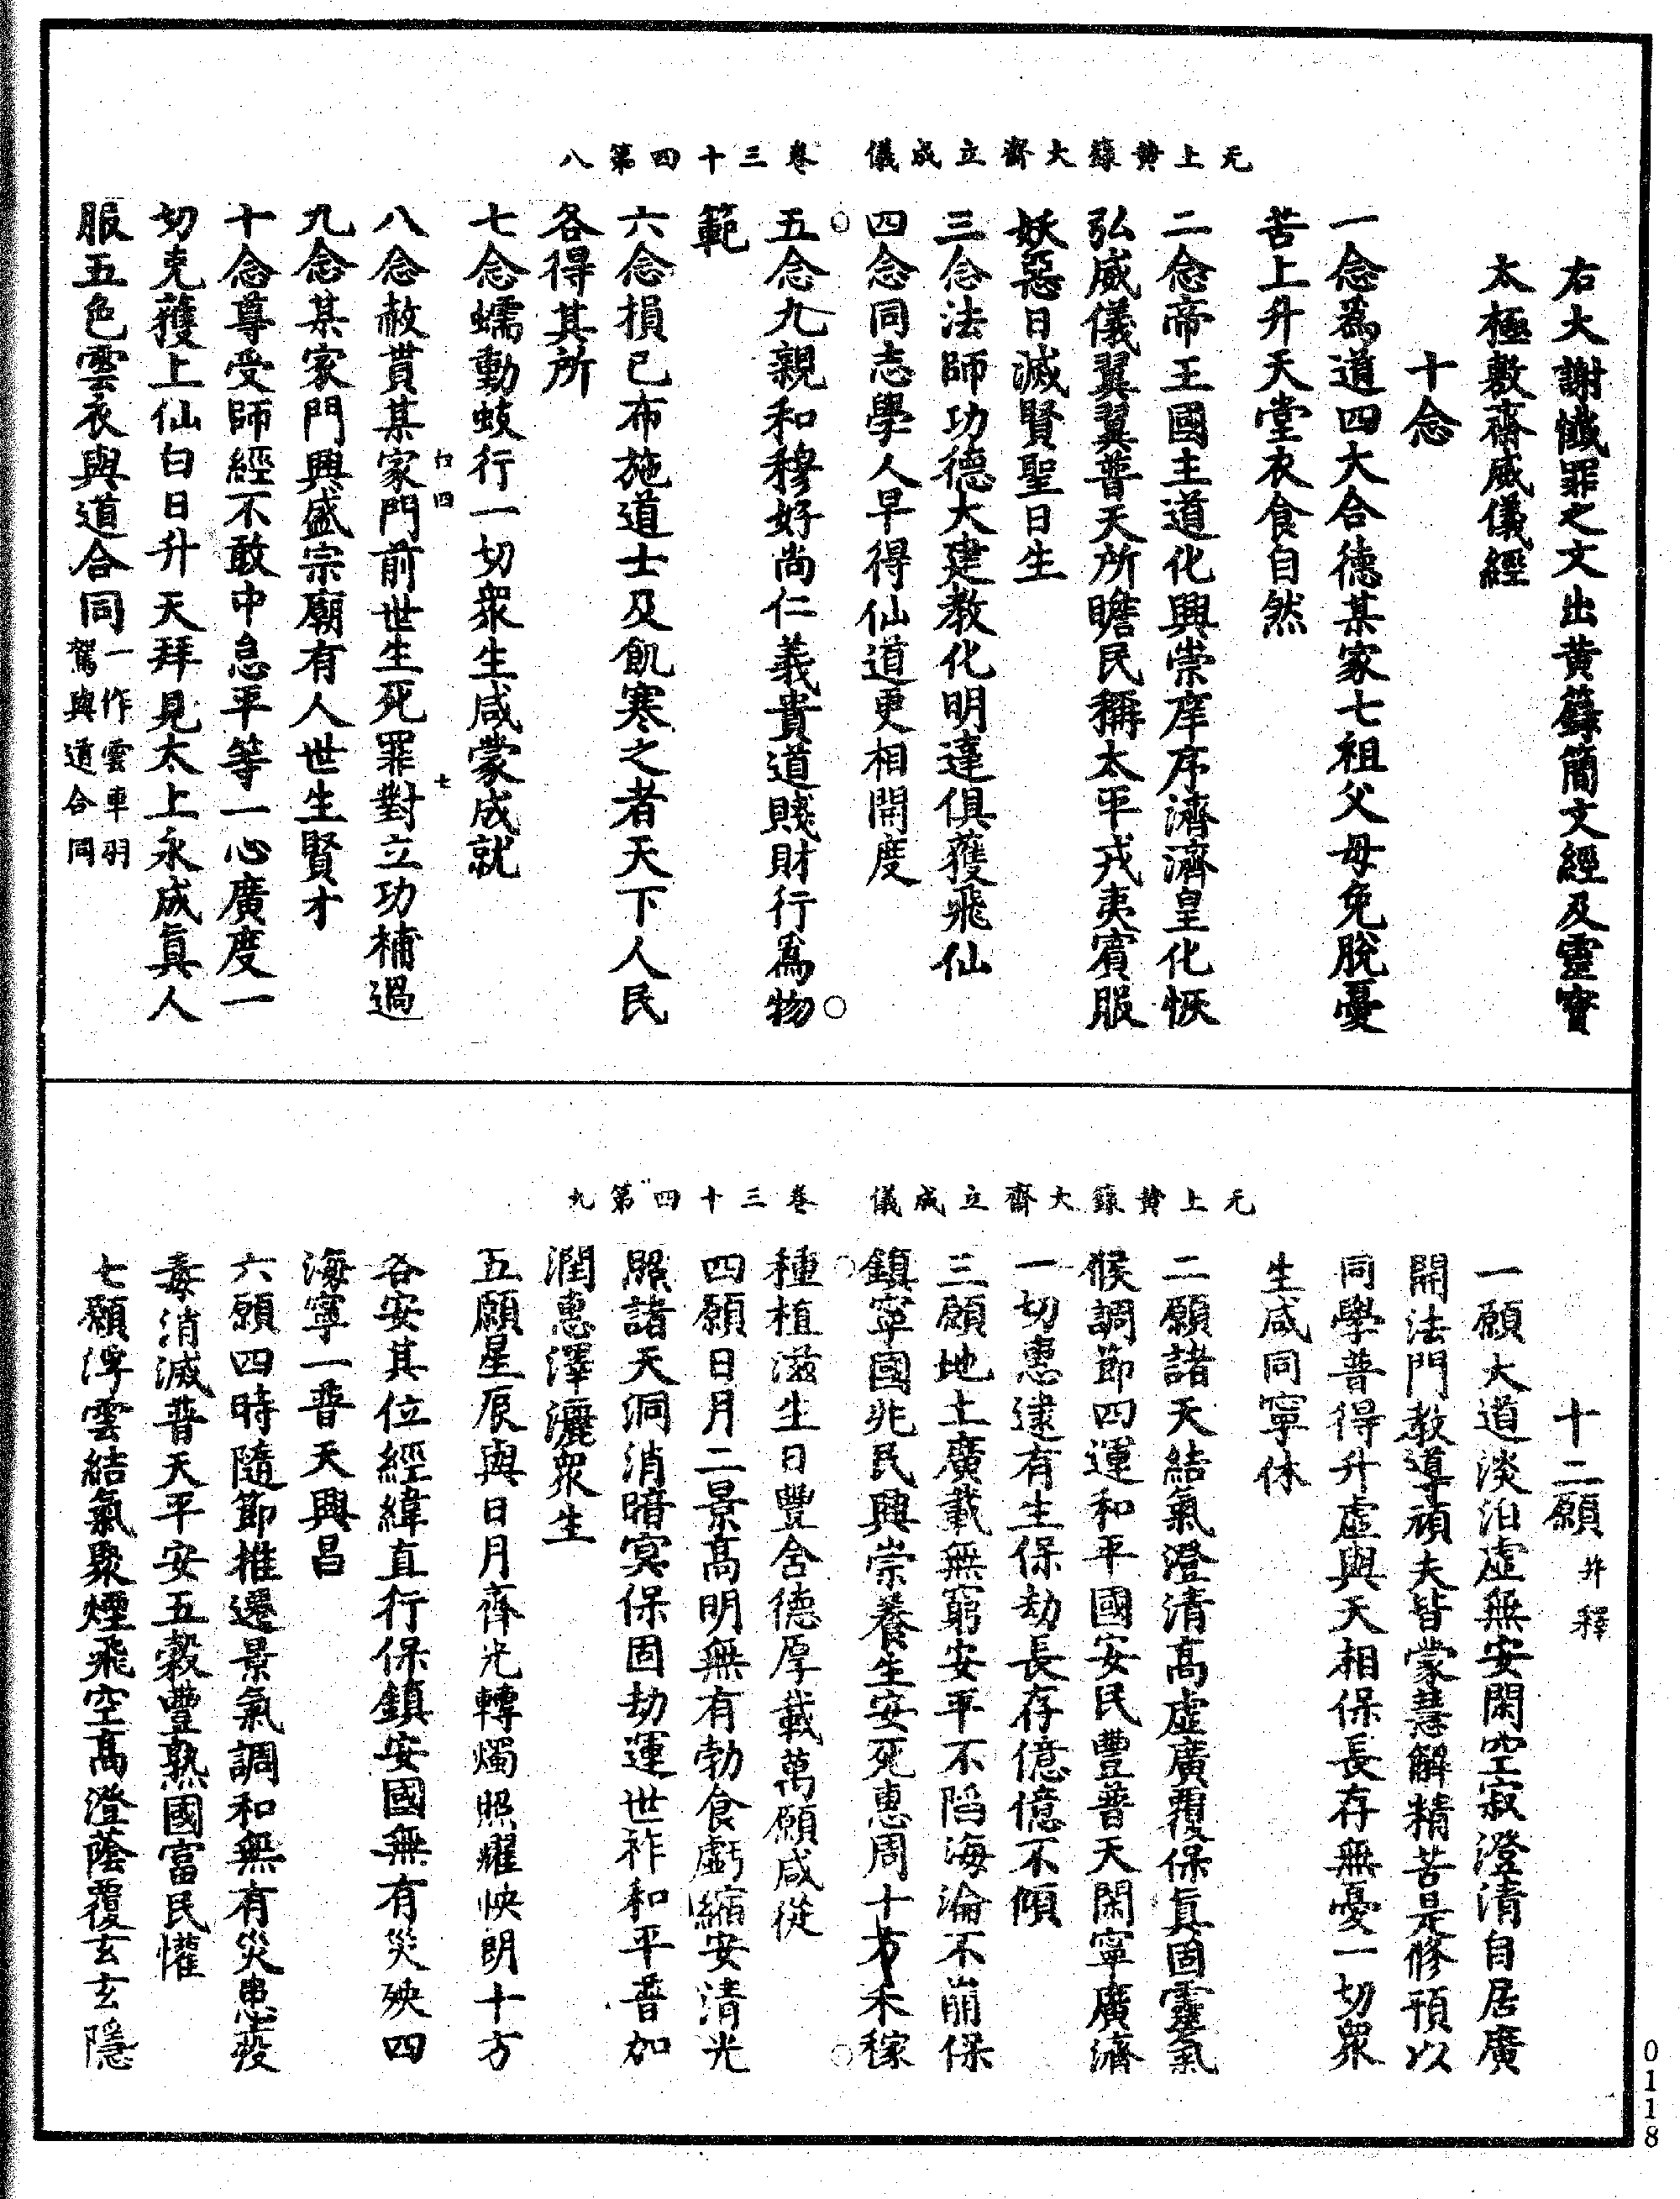 无上黃籙大齋立成儀　卷三十四第八
右大謝懺罪之文出黃籙簡文經及靈寶
太極敷齋威儀經
十念
一念爲道四大合德某家七祖父母免脫憂
苦上升天堂衣食自然
二念帝王國主道化興崇庠序濟濟皇化恢
弘威儀翼翼普天所瞻民稱太平戎夷賓服
妖惡日滅賢聖日生
三念法師功德大建教化明達俱獲飛仙
四念同志學人早得仙道更相開度
五念九親和穆好尚仁義貴道賤財行爲物
範
六念損己布施道士及飢寒之者天下人民
各得其所
七念蠕動蚑行一切眾生咸蒙成就
八念赦貰某家門前世生死罪對立功補過
九念某家門興盛宗廟有人世生賢才
十念尊受師經不敢中怠平等一心廣度一
切克獲上仙白日升天拜見太上永成真人
服五色雲衣與道合同一作雲車羽
駕與道合同
无上黃籙大齋立成儀　卷三十四第九
十二願并釋
一願大道淡泊虛無安閑空寂澄清自居廣
開法門教導頑夫皆蒙慧解精苦是修預以
同學普得升虛與天相保長存無憂一切眾
生咸同寧休
二願諸天結氣澄清高虛廣覆保真固靈氣
候調節四運和平國安民豐普天閑寧廣濟
一切惠逮有生保劫長存億億不傾
三願地土廣載無窮安平不陷海淪不崩保
鎮寧國兆民興崇養生安死惠周十方禾稼
種植滋生日豐含德厚載萬願咸從
四願日月二景高明無有勃食虧縮安清光
照諸天洞消暗冥保固劫運世祚和平普加
潤惠澤灑眾生
五願星辰與日月齊光轉燭照耀怏朗十方
各安其位經緯直行保鎮安國無有災殃四
海寧一普天興昌
六願四時隨節推遷景氣調和無有災患疫
毒消滅普天平安五穀豐熟國富民懽
七願浮雲結氣聚煙飛空高澄蔭覆玄玄隱
0118